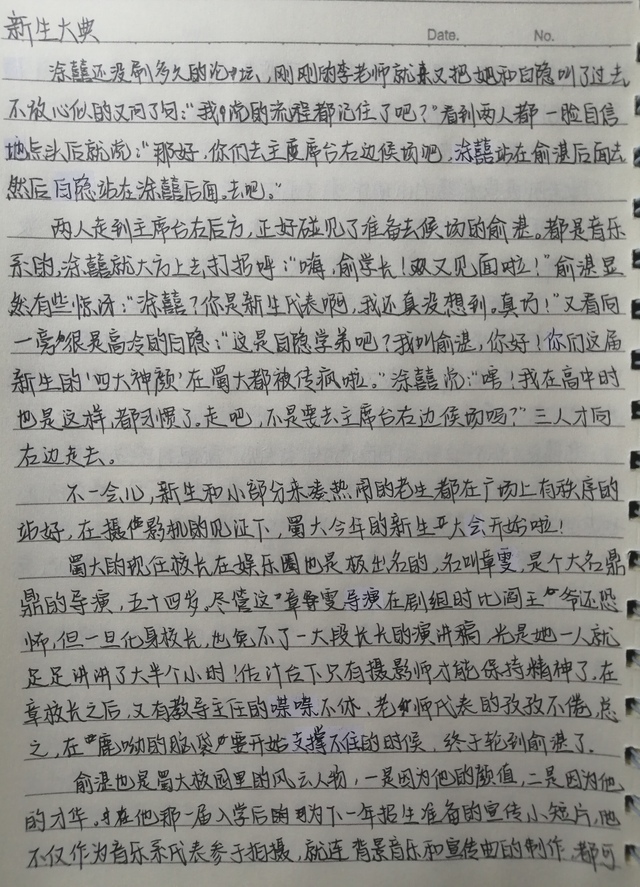 新生大典
Date. No.
涂囍还没刷多久的论坛，刚刚的李老师就来又把她和白隐叫了过去
不放心似的又问了句：“我说的流程都记住了吧？”看到两人都一脸自信
地点头后就说：“那好，你们去主席台右边候场吧，涂囍站在俞湛后面去
然后白隐站在涂囍后面。去吧。”
两人走到主席台右后方，正好碰见了准备去候场的俞湛。都是音乐
系的，涂囍就大方上去打招呼：“嗨，俞学长！又又见面啦！”俞湛显
然有些惊讶：“涂囍？你是新生代表啊，我还真没想到。真巧！”又看向
一旁很是高冷的白隐：“这是白隐学弟吧？我叫俞湛，你好！你们这届
新生的‘四大神颜’在蜀大都被传疯啦。”涂囍说：“啥！我在高中时
也是这样，都习惯了。走吧，不是要去主席台右边候场吗？”三人才向
右边走去。
不一会儿，新生和小部分来凑热闹的老生都在广场上有秩序的
站好，在摄影机的见证下，蜀大今年的新生大会开始啦！
蜀大的现任校长在娱乐圈也是极出名的，名叫章雯，是个大名鼎
鼎的导演，五十四岁。尽管这“章雯导演在剧组时比阎王”爷还恐
怖，但一旦化身校长，也免不了一大段长长的演讲稿，光是她一人就
足足讲讲了大半个小时！估计台下只有摄影师才能保持精神了。在
章校长之后，又有教导主任的喋喋不休、老师代表的孜孜不倦，总
之，在“鹿呦的脑袋”要开始支撑不住的时候，终于轮到俞湛了。
俞湛也是蜀大校园里的风云人物，一是因为他的颜值，二是因为他
的才华。在他那一届入学后为下一年报生准备的宣传小短片，他
不仅作为音乐系代表参于拍摄，就连背景音乐和宣传曲的制作，都可